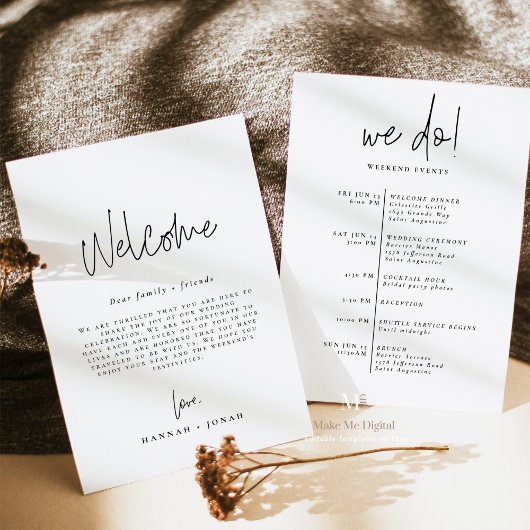 Welcome
Dear family + friends
WE ARE THRILLED THAT YOU ARE HERE TO
SHARE THE JOY OF OUR WEDDING
CELEBRATION. WE ARE SO FORTUNATE TO
HAVE EACH AND EVERY ONE OF YOU IN OUR
LIVES AND ARE HONORED THAT YOU HAVE
TRAVELED TO BE WITH US. WE HOPE YOU
ENJOY YOUR STAY AND THE WEEKEND'S
FESTIVITIES.
love,
HANNAH + JONAH
we do!
WEEKEND EVENTS
FRI JUN 13
6:00 PM
WELCOME DINNER
Celestite Grille
1642 Grande Way
Saint Augustine
SAT JUN 14
3:00 PM
WEDDING CEREMONY
Barrier Manor
1578 Jefferson Road
Saint Augustine
4:30 PM
COCKTAIL HOUR
Bridal party photos
5:30 PM
RECEPTION
10:00 PM
SHUTTLE SERVICE BEGINS
Until midnight
SUN JUN 15
11:30AM
BRUNCH
Barrier Terrace
1578 Jefferson Road
Saint Augustine
Make Me Digital
Editable Templates on Etsy